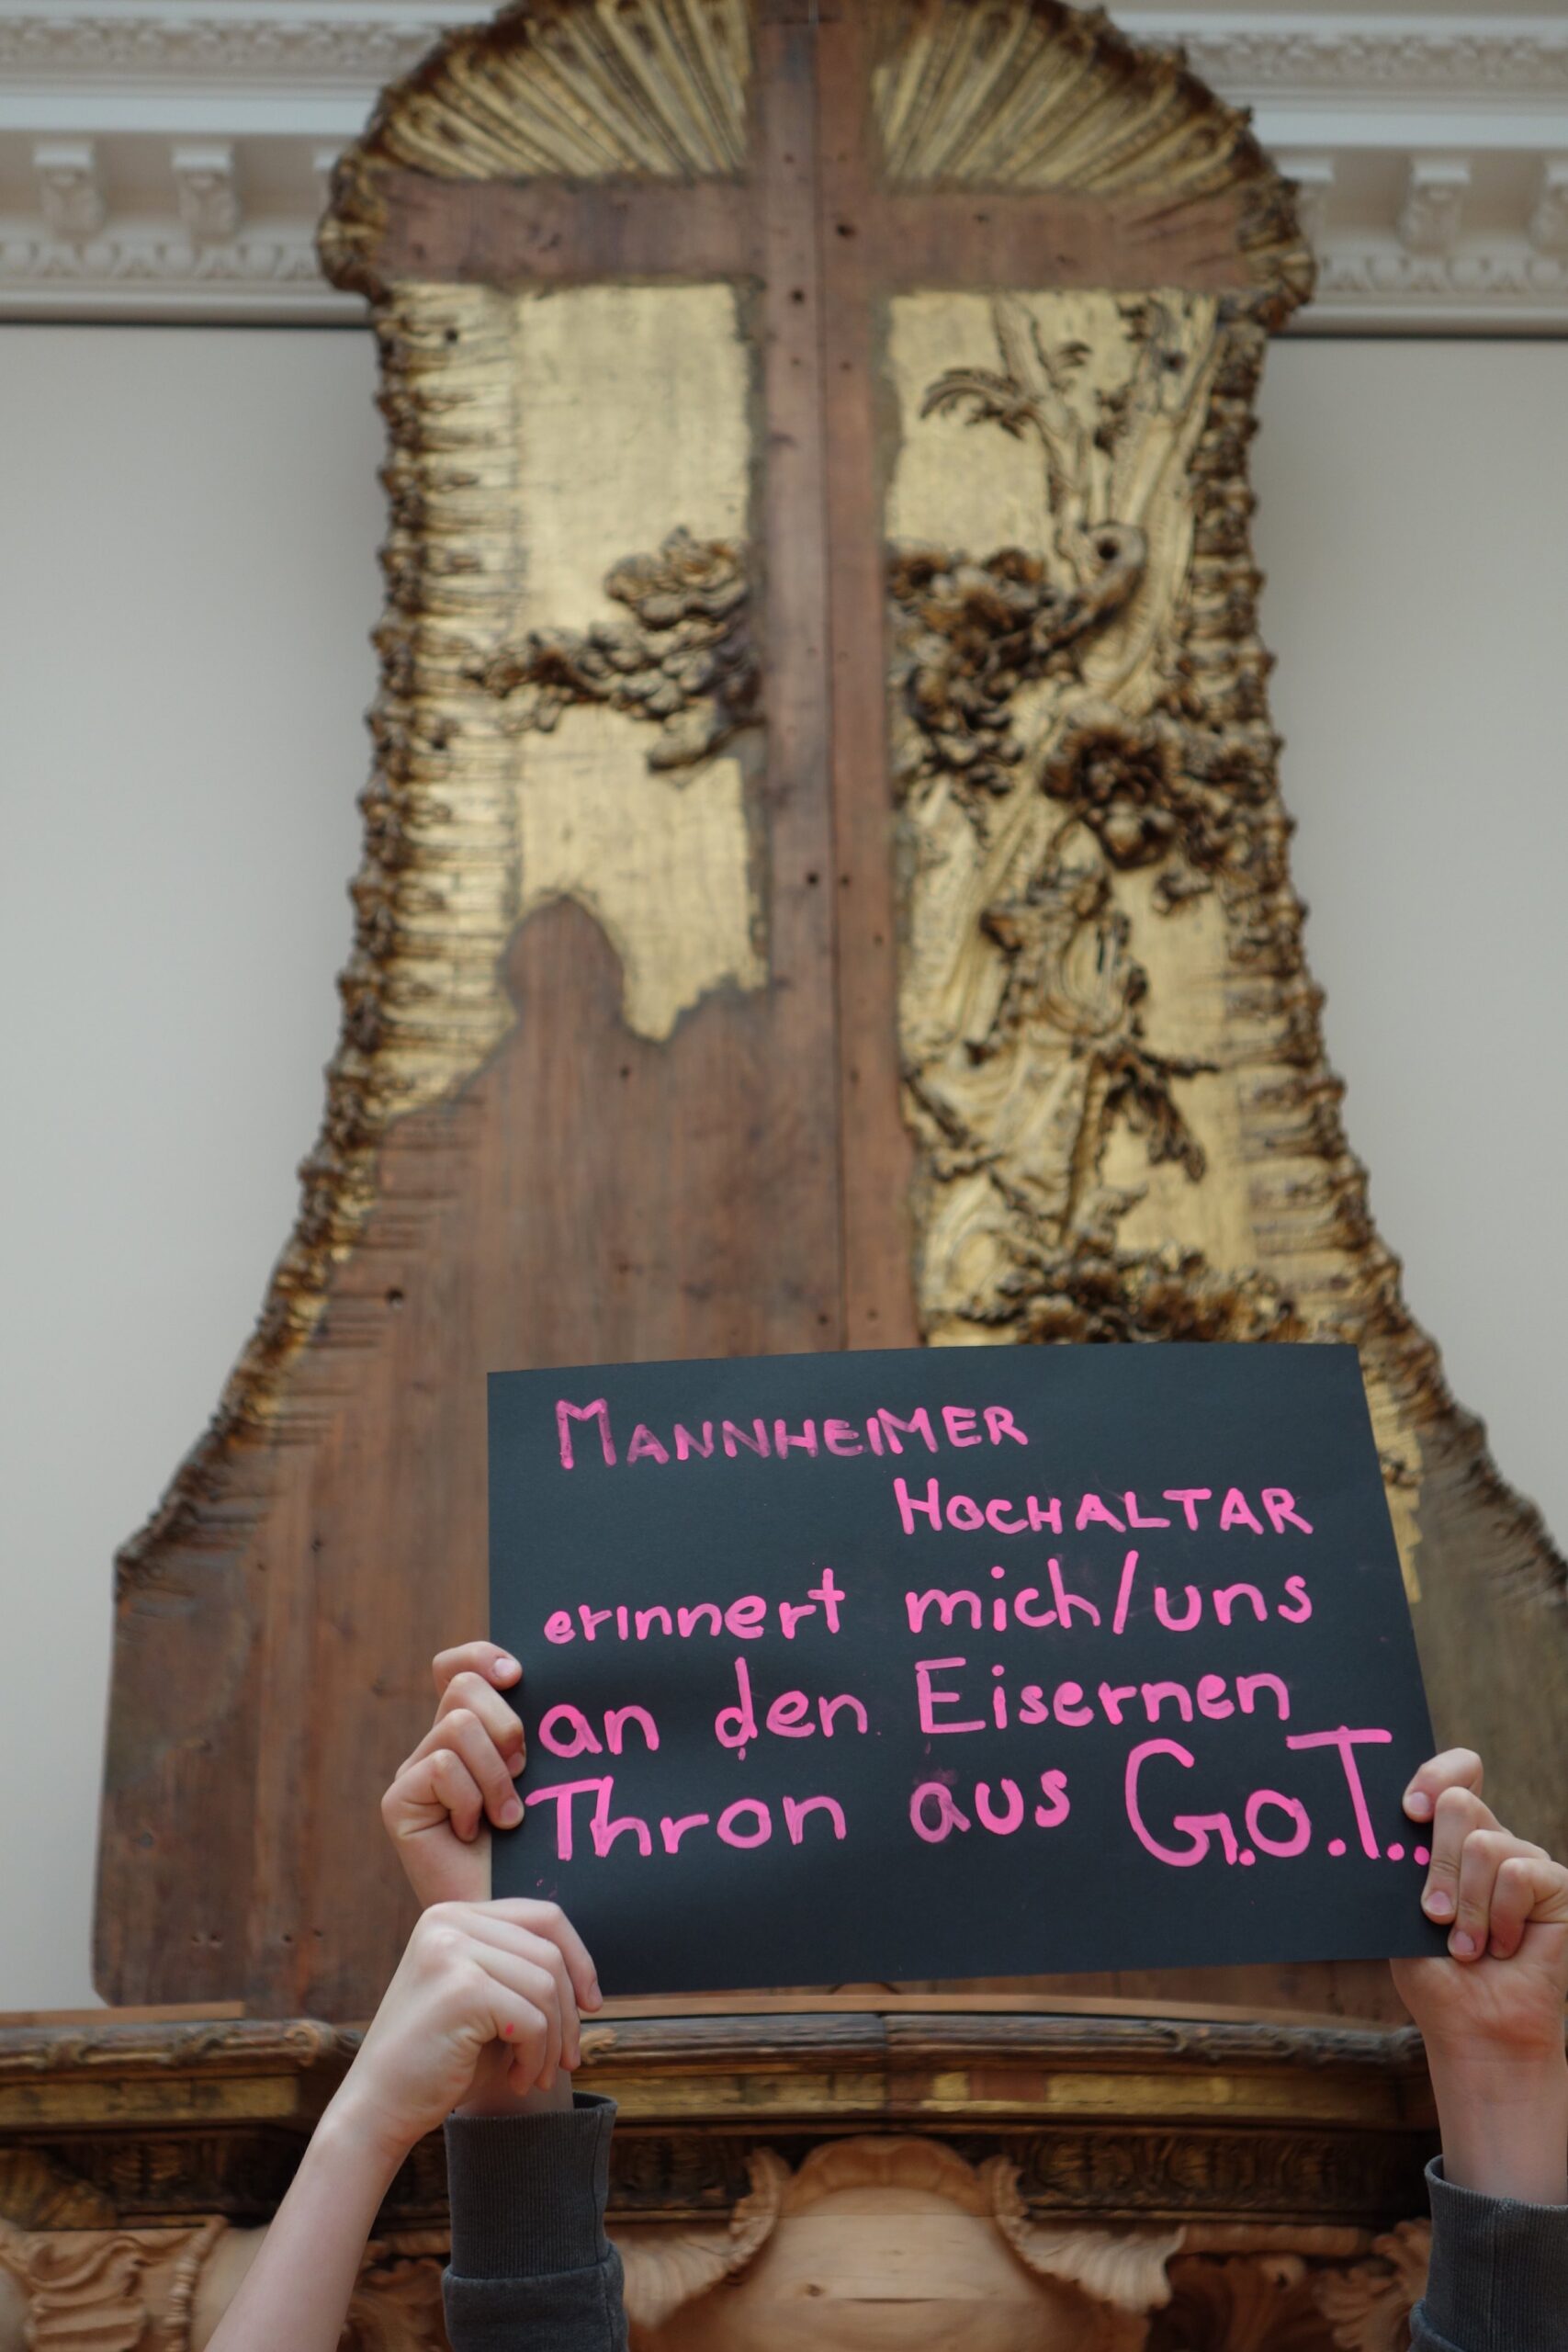 MANNHEIMER
HOCHALTAR
erinnert mich/uns
an den Eisernen
Thron aus G.o.T..